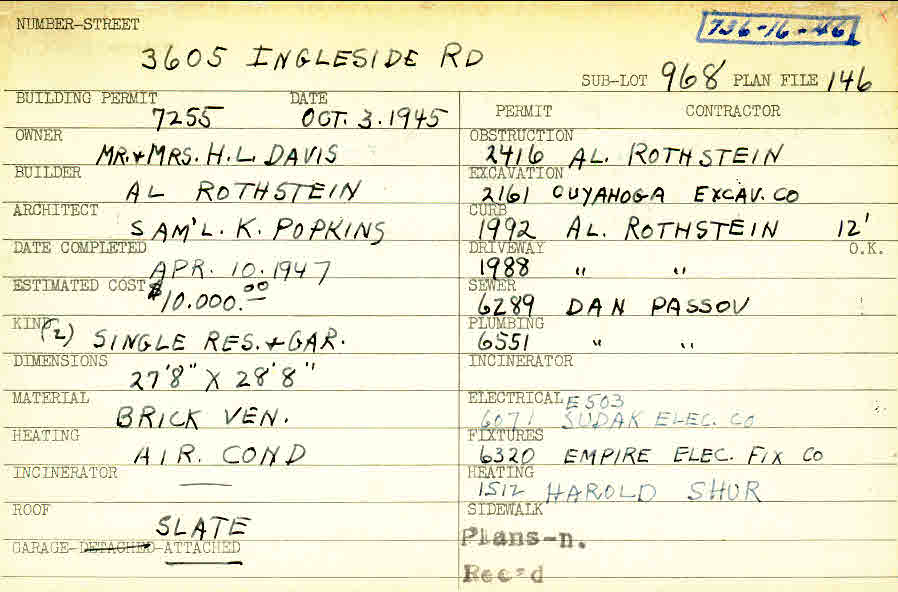 NUMBER-STREET
736-16-46
3605 INGLESIDE RD
SUB-LOT 968 PLAN FILE 146
BUILDING PERMIT DATE
7255 OCT. 3. 1945
OWNER
MR. + MRS. H. L. DAVIS
BUILDER
AL ROTHSTEIN
ARCHITECT
SAM'L. K. POPKINS
DATE COMPLETED
APR. 10. 1947
ESTIMATED COST
$10.000.00
KIND
(2) SINGLE RES. + GAR.
DIMENSIONS
27'8" X 28'8"
MATERIAL
BRICK VEN.
HEATING
AIR. COND
INCINERATOR
—
ROOF
SLATE
GARAGE-DETACHED-ATTACHED
PERMIT CONTRACTOR
OBSTRUCTION
2416 AL. ROTHSTEIN
EXCAVATION
2161 CUYAHOGA EXCAV. CO
CURB
1992 AL. ROTHSTEIN 12'
DRIVEWAY O.K.
1988 " "
SEWER
6289 DAN PASSOV
PLUMBING
6551 " "
INCINERATOR
ELECTRICAL E503
6071 SUDAK ELEC. CO
FIXTURES
6320 EMPIRE ELEC. FIX CO
HEATING
1512 HAROLD SHUR
SIDEWALK
Plans-n.
Rec=d